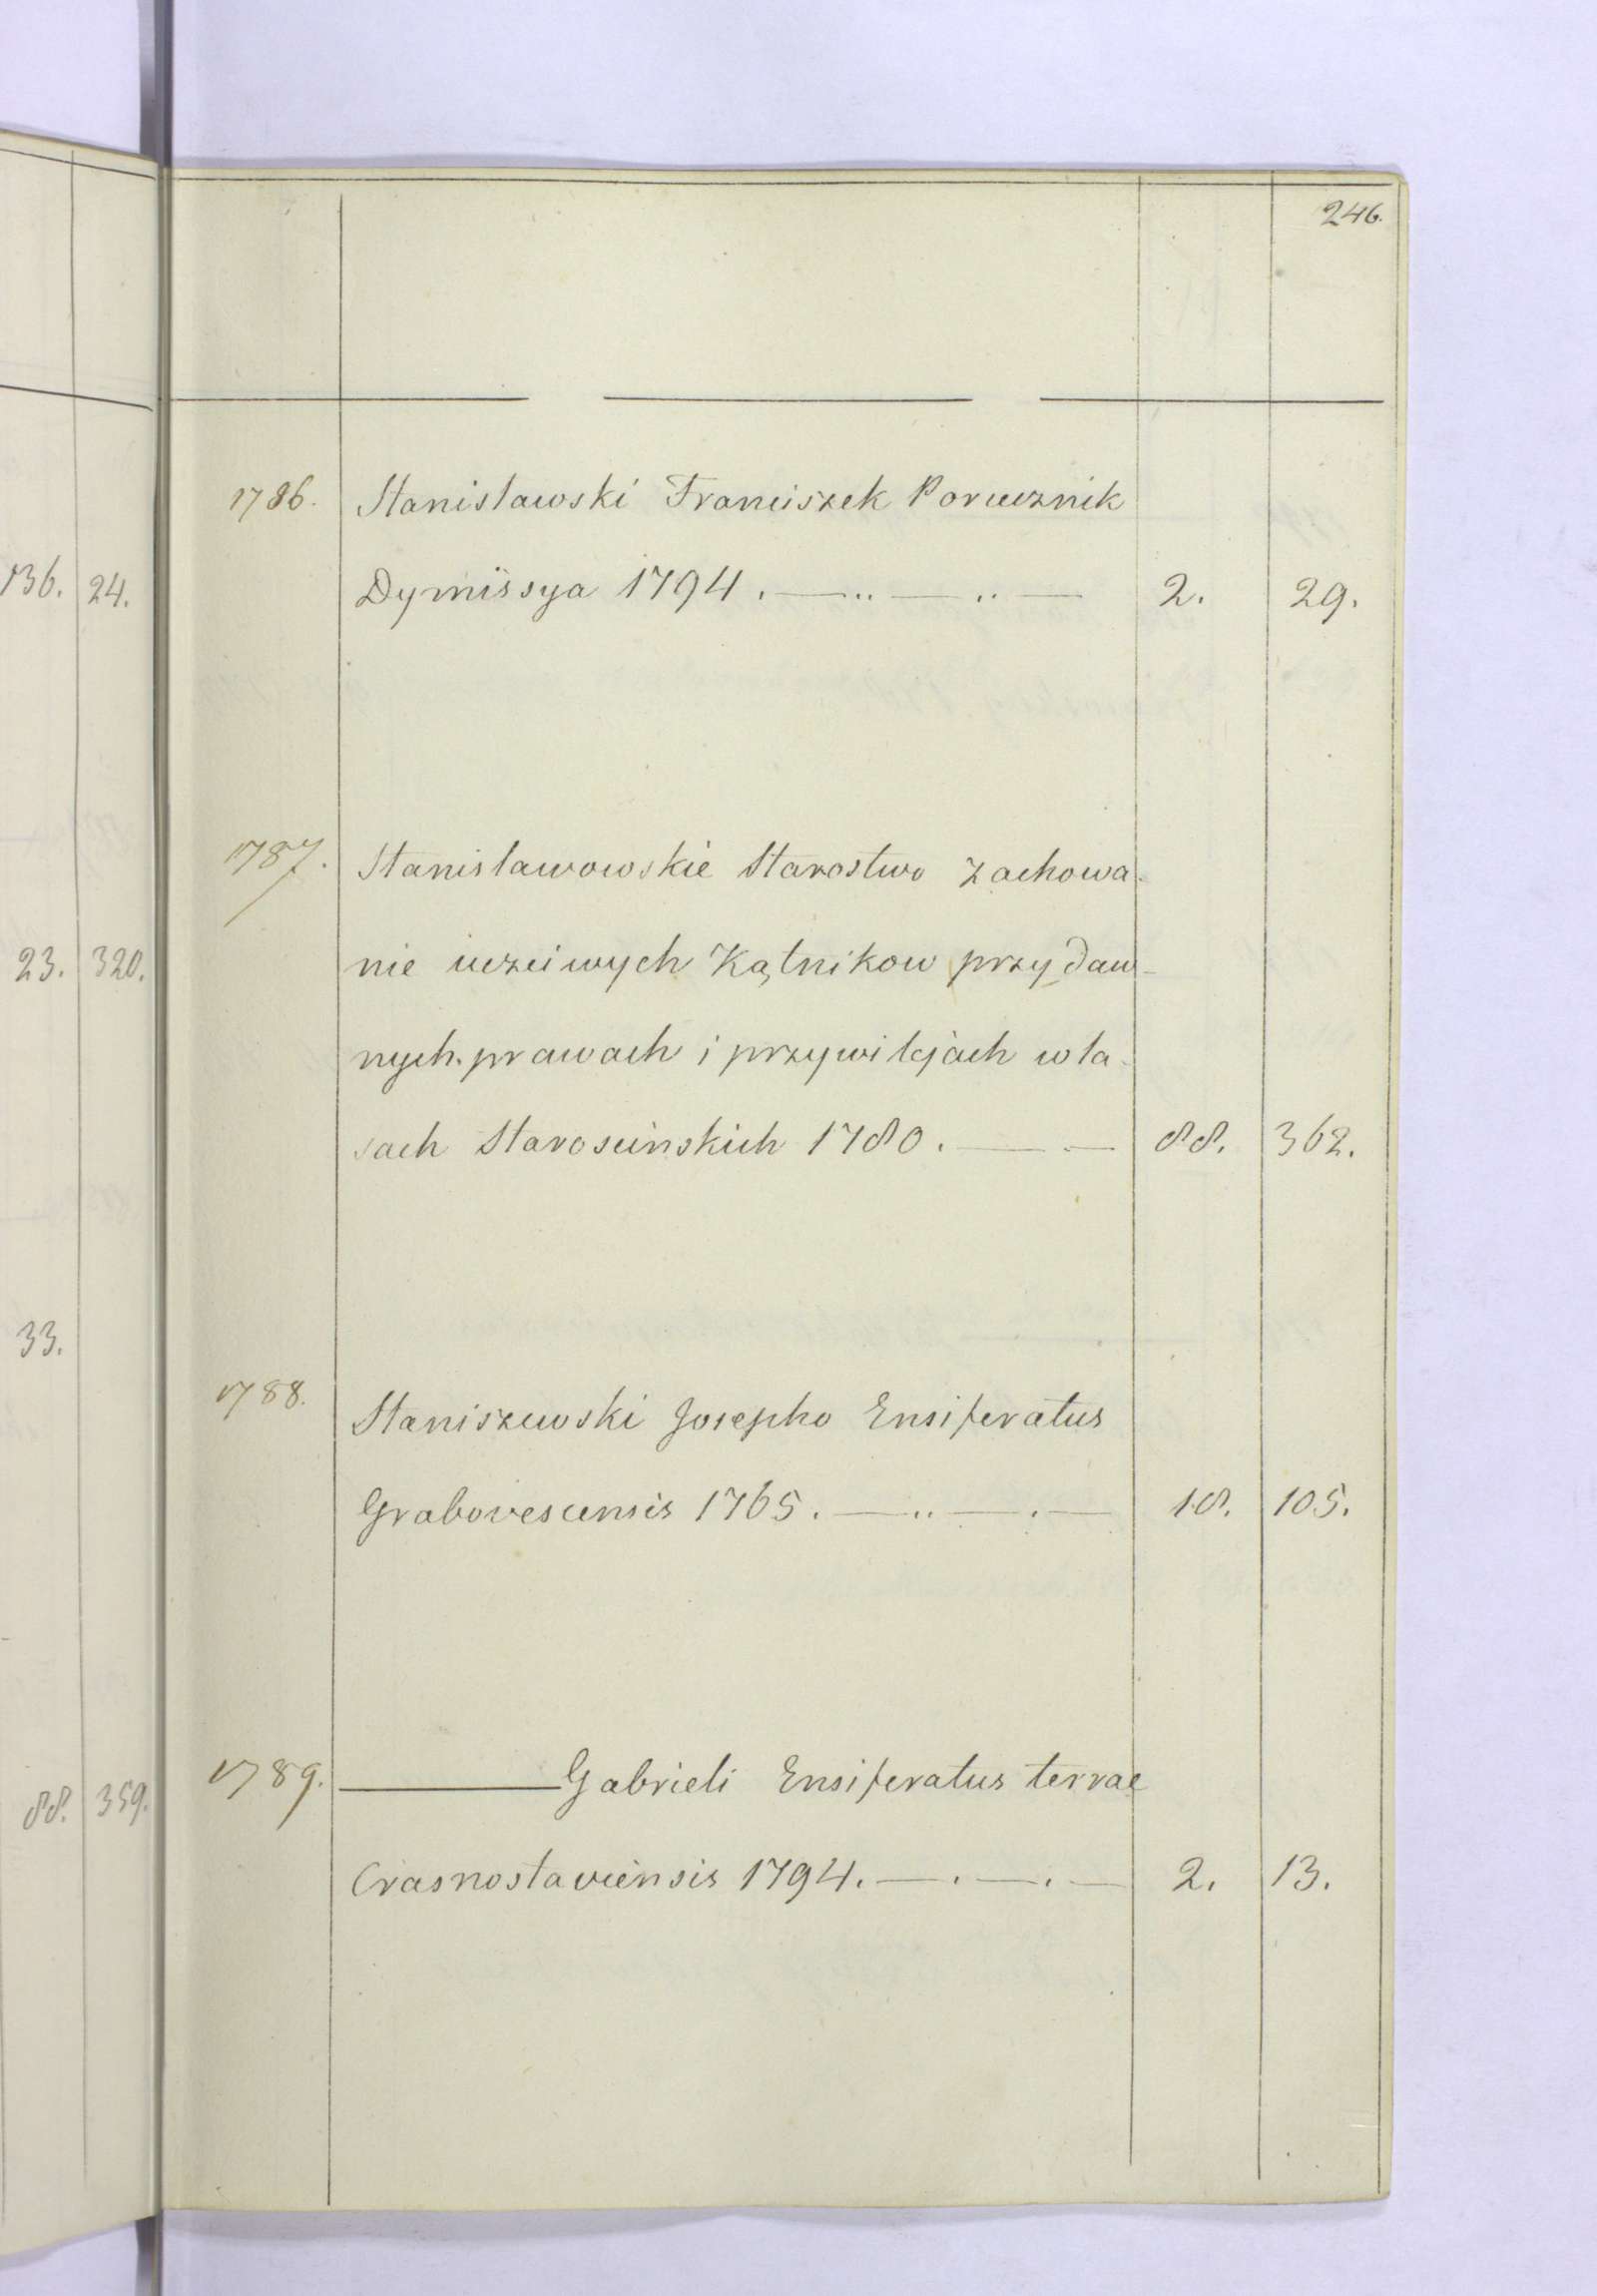 246.
136. 24.
23. 320.
33.
88. 359.
1786. Stanisławski Franciszek Porucznik
Dymissya 1794 . — .. — .. — 2. 29.
1787. Stanisławowskie Starostwo zachowa-
nie uczciwych Kątnikow przy daw-
nych prawach i przywilejach w la-
sach Starościnskich 1780 . — . — 88. 362.
1788. Staniszewski Josepho Ensiferatus
Grabovescensis 1765 . — .. — . — 18. 105.
1789. ——— Gabrieli Ensiferatus terrae
Crasnostaviensis 1794. — . — . — 2. 13.